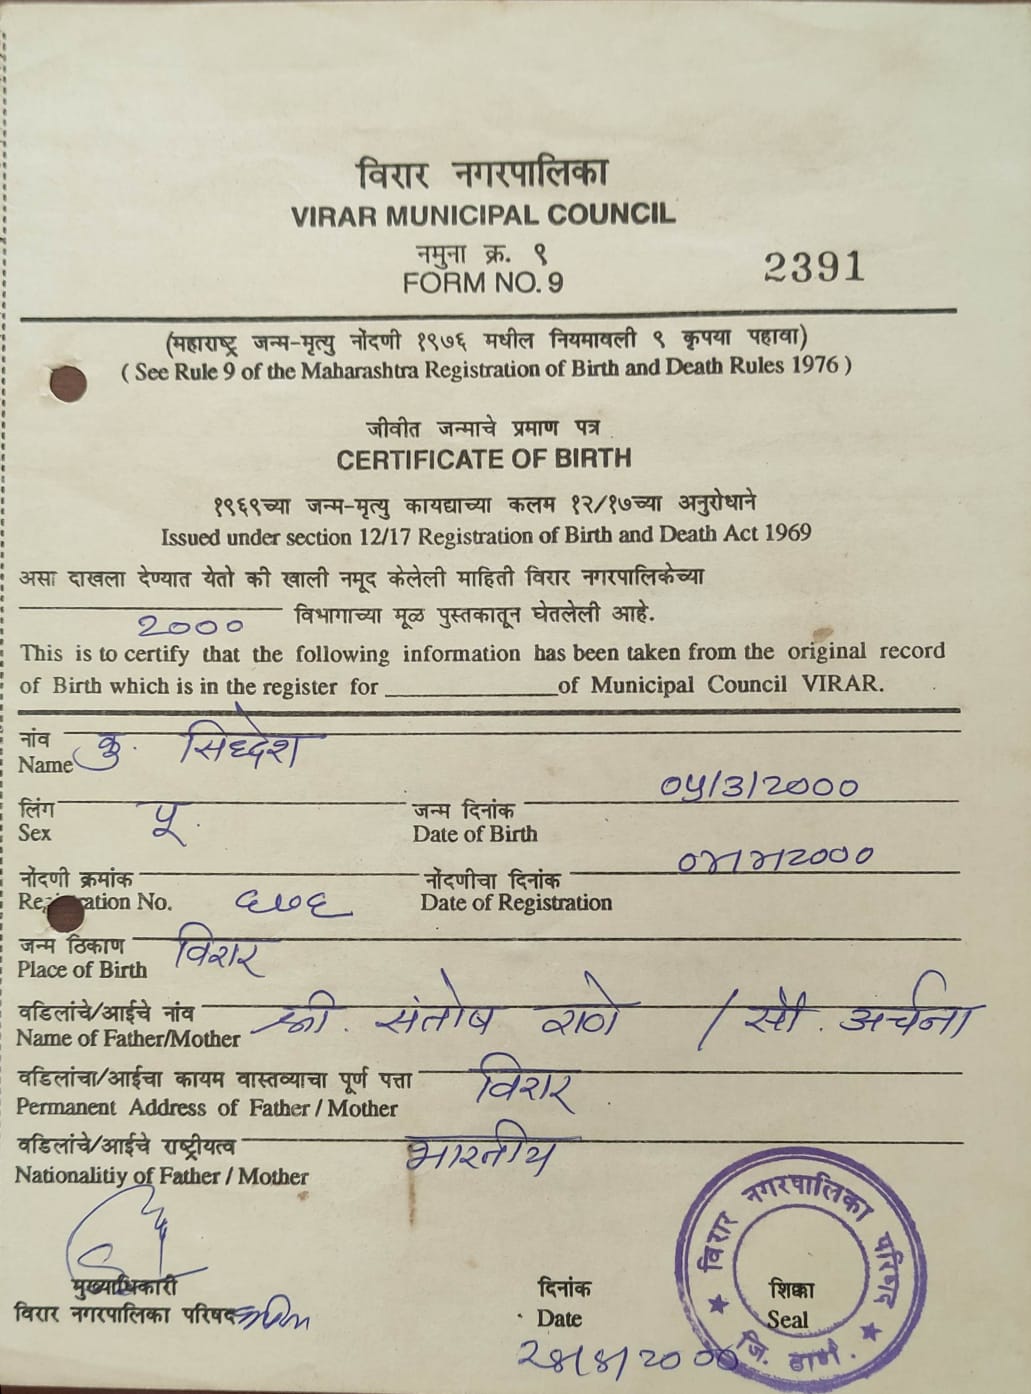 विरार नगरपालिका
VIRAR MUNICIPAL COUNCIL
नमुना क्र. ९
FORM NO. 9
2391
(महाराष्ट्र जन्म-मृत्यु नोंदणी १९७६ मधील नियमावली ९ कृपया पहावा)
( See Rule 9 of the Maharashtra Registration of Birth and Death Rules 1976 )
जीवीत जन्माचे प्रमाण पत्र
CERTIFICATE OF BIRTH
१९६९च्या जन्म-मृत्यु कायद्याच्या कलम १२/१७च्या अनुरोधाने
Issued under section 12/17 Registration of Birth and Death Act 1969
असा दाखला देण्यात येतो की खाली नमूद केलेली माहिती विरार नगरपालिकेच्या
विभागाच्या मूळ पुस्तकातून घेतलेली आहे.
2000
This is to certify that the following information has been taken from the original record
of Birth which is in the register for of Municipal Council VIRAR.
नांव कु. सिध्देश
Name
05/3/2000
लिंग पू. जन्म दिनांक
Sex Date of Birth
2000
नोंदणी क्रमांक नोंदणीचा दिनांक
Registration No. ६७६ Date of Registration
जन्म ठिकाण विरार
Place of Birth
वडिलांचे/आईचे नांव श्री. संतोष राणे / सौ. अर्चना
Name of Father/Mother
वडिलांचा/आईचा कायम वास्तव्याचा पूर्ण पत्ता विरार
Permanent Address of Father / Mother
वडिलांचे/आईचे राष्ट्रीयत्व भारतीय
Nationalitiy of Father / Mother
विरार नगरपालिका परिषद
जि. ठाणे.
मुख्याधिकारी दिनांक शिक्का
विरार नगरपालिका परिषद Date Seal